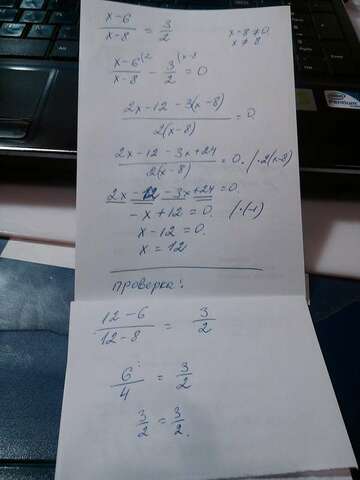 (x-6)/(x-8) = 3/2    x-8≠0
x≠8
(x-6^(2)/(x-8) - 3^(x-8)/2 = 0
(2x-12-3(x-8))/(2(x-8)) = 0
(2x-12-3x+24)/(2(x-8)) = 0. /·2(x-8)
2x-12-3x+24=0.
-x+12=0. /·(-1)
x-12=0.
x=12
проверка:
(12-6)/(12-8) = 3/2
6/4 = 3/2
3/2 = 3/2.
intel
Pentium